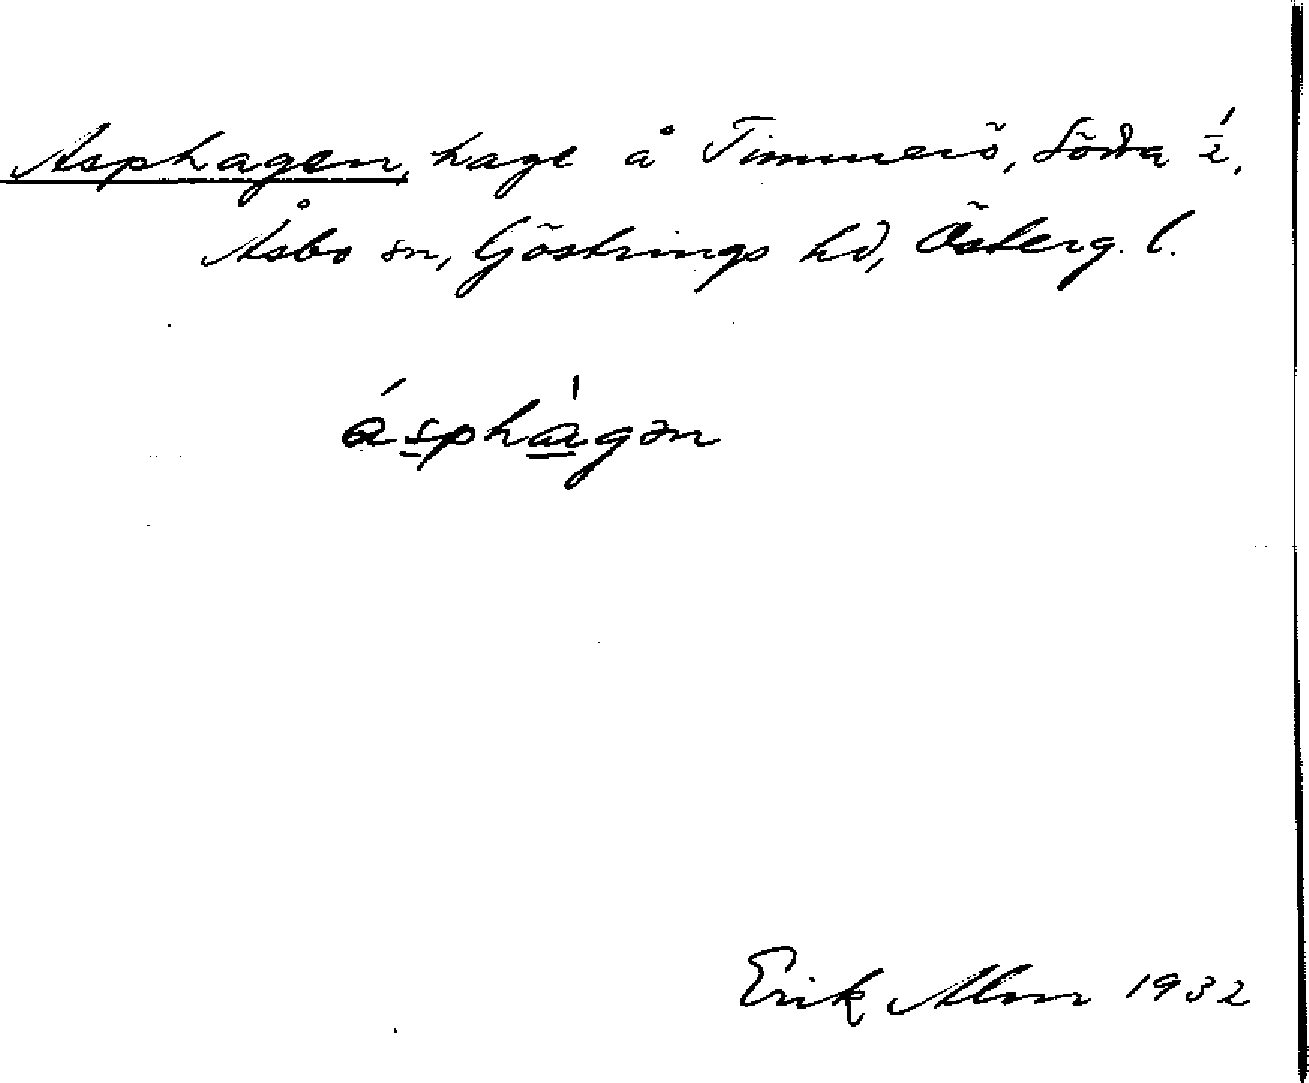 Asphagen, hage å Timmerö, Södra ½,
Åsbo sn, Göstrings hd, Österg. l.
ásphàgən
Erik Alm 1932